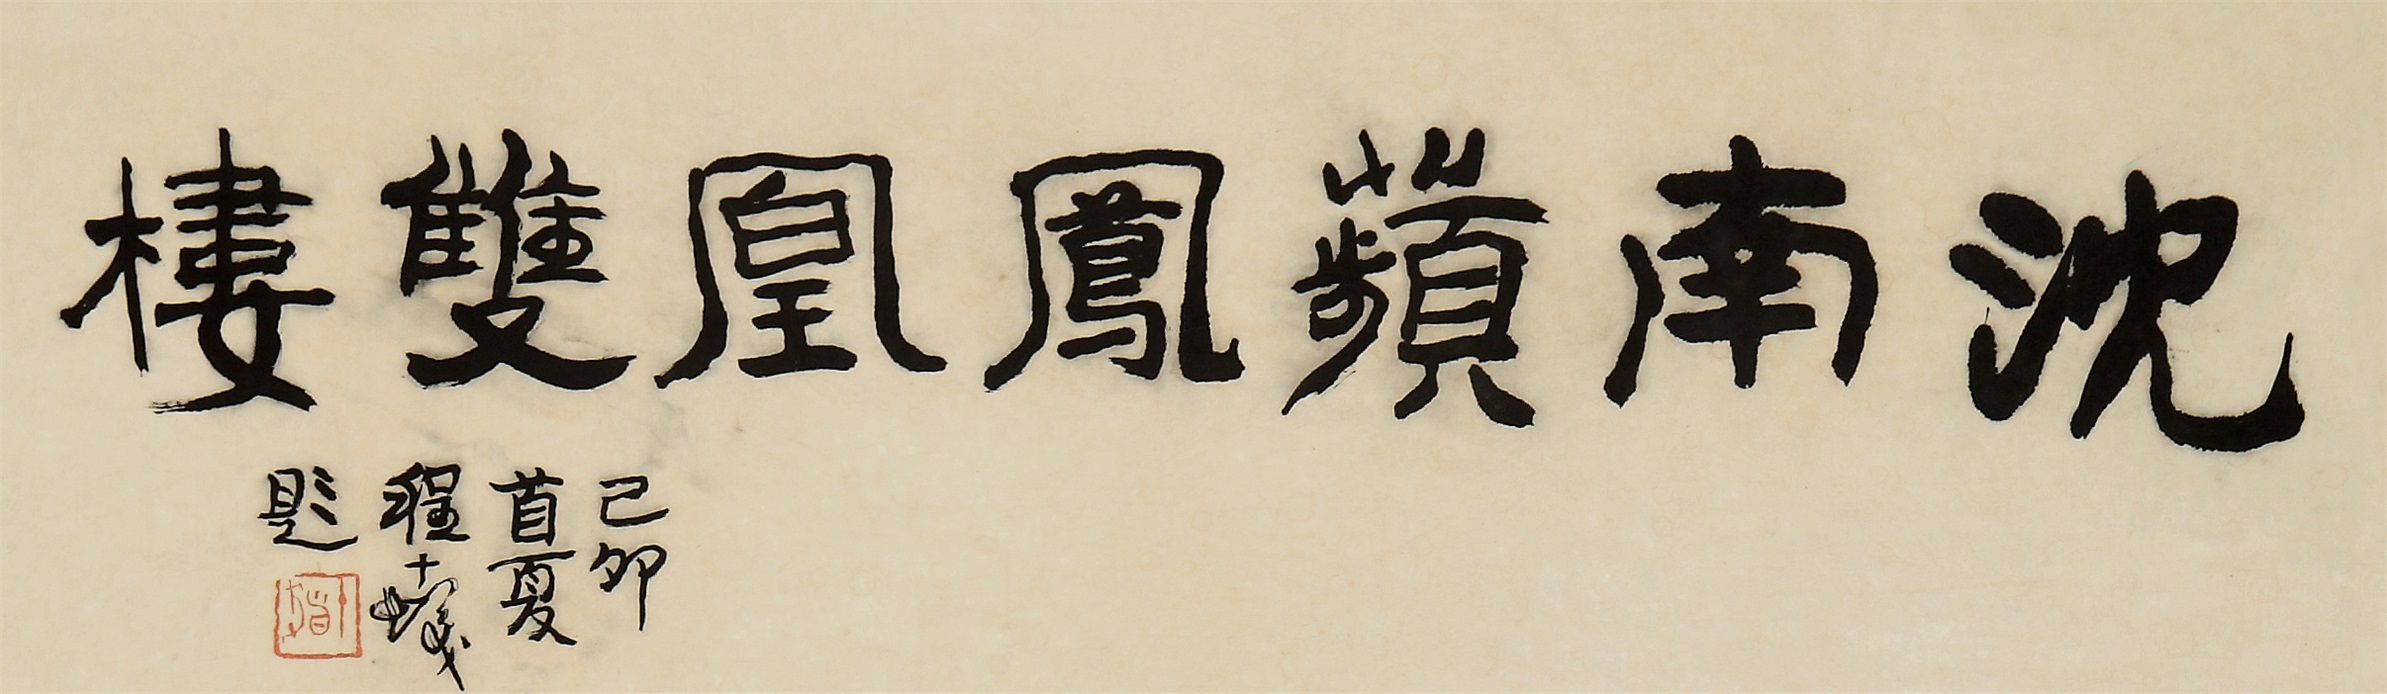 沈南蘋鳳凰雙棲
己卯
首夏
程十髮
題